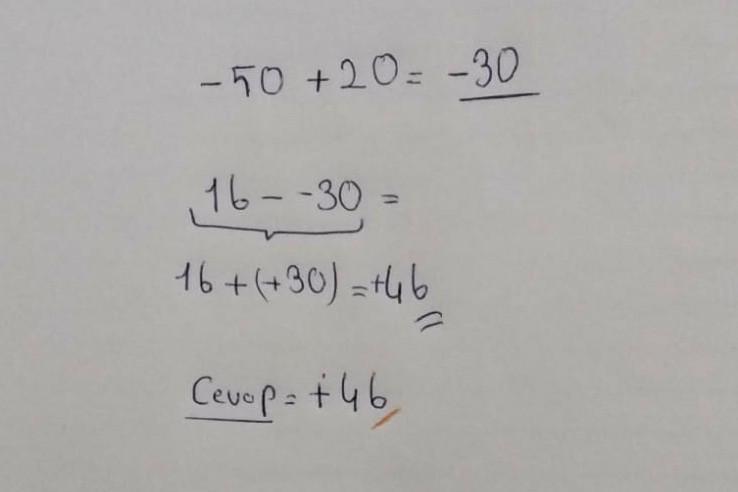 -50 +20 = -30
16 - -30 =
16 + (+30) = +46
Cevap = +46